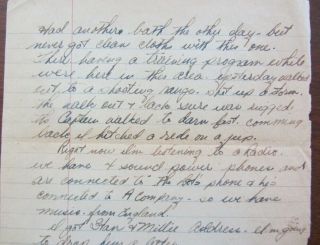 Had another bath the other day - but
never got clean cloths with this one.
There having a training program while
were here in this area yesterday walked
out to a shooting range. Set up a storm.
The walk out & back sure was rugged
the Captain walked to darn fast. comming
back I hitched a ride on a jeep.
Right now I'm listening to a Radio.
we have 4 sound power phones and
are connected to phone & he's
connected to A Company - so we have
music from England.
I got Stan & Millie Address. I'm going
to drop him a letter